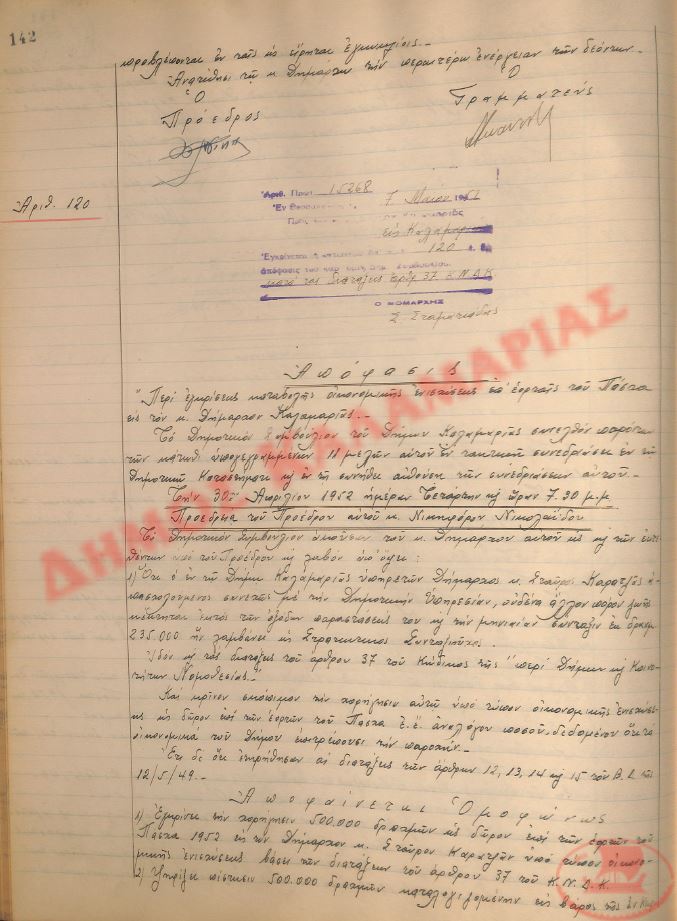 142
προβλέπονται ἐν ταῖς ὡς εἴρηται ἐγκυκλίοις.-
Ἀναθέτει τῷ κ. Δημάρχῳ τὴν περαιτέρω ἐνέργειαν τῶν δεόντων.
Ὁ Ὁ
Πρόεδρος Γραμματεύς
Ἀριθ. 120
Ἀριθ. Πρωτ. 15268
Ἐν 7 Μαΐου 1952
Πρὸς
εἰς Καλαμαριὰν
Ἐγκρίνεται 120
ἀπόφασις τοῦ
κατὰ τὰς διατάξεις ἄρθρ 37 Κ.Ν.Δ.Κ
Ο ΝΟΜΑΡΧΗΣ
Σ. Σταματιάδης
Ἀπόφασις
"Περὶ ἐγκρίσεως καταβολῆς οἰκονομικῆς ἐνισχύσεως ἐπὶ ἑορταῖς τοῦ Πάσχα
εἰς τὸν κ. Δήμαρχον Καλαμαριᾶς.-
Τὸ Δημοτικὸν Συμβούλιον τοῦ Δήμου Καλαμαριᾶς συνελθὸν παρόντων
τῶν κάτωθι ὑπογεγραμμένων 11 μελῶν αὐτοῦ ἐν τακτικῇ συνεδριάσει ἐν τῷ
Δημοτικῷ Καταστήματι καὶ ἐν τῇ συνήθει αἰθούσῃ τῶν συνεδριάσεων αὐτοῦ.-
Τὴν 30ην Ἀπριλίου 1952 ἡμέραν Τετάρτην καὶ ὥραν 7.30 μ.μ
Προεδρείᾳ τοῦ Προέδρου αὐτοῦ κ. Νικηφόρου Νικολαΐδου
Τὸ Δημοτικὸν Συμβούλιον ἀκοῦσαν τοῦ κ. Δημάρχου αὐτοῦ καὶ τῶν ἐκτε-
θέντων ὑπὸ τοῦ Προέδρου καὶ λαβὸν ὑπ' ὄψει:
1) Ὅτι ὁ ἐν τῷ Δήμῳ Καλαμαριᾶς ὑπηρετῶν Δήμαρχος κ. Σταῦρος Καρατζᾶς ἀ-
πασχολούμενος συνεχῶς μὲ τὴν Δημοτικὴν Ὑπηρεσίαν, οὐδένα ἄλλον πόρον ζωῆς
κέκτηται ἐκτὸς τῶν ἐξόδων παραστάσεώς του καὶ τὴν μηνιαίαν σύνταξιν ἐκ δραχμ
235.000 ἣν λαμβάνει ὡς Στρατιωτικὸς Συνταξιοῦχος.
Ἰδὸν καὶ τὰς διατάξεις τοῦ ἄρθρου 37 τοῦ Κώδικος τῆς "περὶ Δήμων καὶ Κοινο-
τήτων Νομοθεσίας"
Καὶ κρῖνον σκόπιμον τὴν χορήγησιν αὐτῷ ὑπὸ τύπον οἰκονομικῆς ἐνισχύσε-
ως ὡς δῶρον ἐπὶ τῶν ἑορτῶν τοῦ Πάσχα ἐ.ἔ. ἀναλόγου ποσοῦ, δεδομένου ὅτι τὰ
οἰκονομικὰ τοῦ Δήμου ἐπιτρέπουσι τὴν παροχήν.-
Ἔτι δὲ ὅτι ἐτηρήθησαν αἱ διατάξεις τῶν ἄρθρων 12, 13, 14 καὶ 15 τοῦ Β.Δ. τῆς
12/5/49.-
Ἀποφαίνεται Ὁμοφώνως
1) Ἐγκρίνει τὴν χορήγησιν 500.000 δραχμῶν ὡς δῶρον ἐπὶ τῶν ἑορτῶν τοῦ
Πάσχα 1952 εἰς τὸν Δήμαρχον κ. Σταῦρον Καρατζᾶν ὑπὸ τύπον οἰκονο-
μικῆς ἐνισχύσεως βάσει τῶν διατάξεων τοῦ ἄρθρου 37 τοῦ Κ.Ν.Δ.Κ.
2) Ψηφίζει πίστωσιν 500.000 δραχμῶν καταλογιζομένην εἰς βάρος τῆς
ΔΗΜΟΣ ΚΑΛΑΜΑΡΙΑΣ